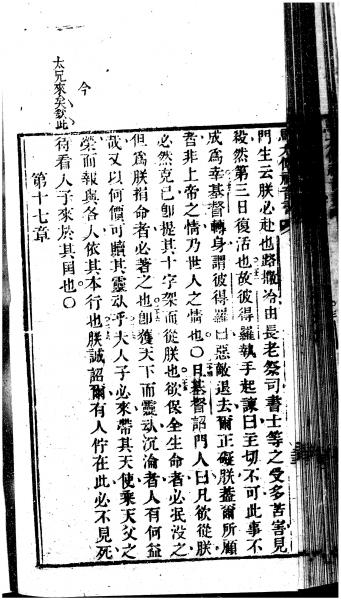 門生云朕必赴也路撒冷由長老祭司書士等之受多苦害見
殺然第三日復活也故彼得羅執手起讓曰主切不可此事不
成爲幸基督轉身謂彼得羅曰惡敵退去爾正礙朕蓋爾所願
者非上帝之情乃世人之情也〇且基督詔門人曰凡欲從朕
必然克己卽提其十字架而從朕也欲保全生命者必泯沒之
但爲朕捐命者必著之也卽獲天下而靈魂沉淪者人有何益
哉又以何價可贖其靈魂乎夫人子必來帶其天使乘天父之
榮而報與各人依其本行也朕誠詔爾有人佇在此必不見死
待看人子來於其国也〇
第十七章
今
太兄來矣欽此